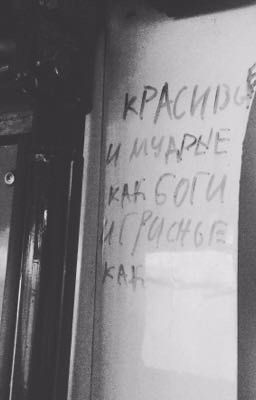 КРАСИВЫ
И МУДРЫЕ
КАК БОГИ
И ГРУСНЫЕ
КАК